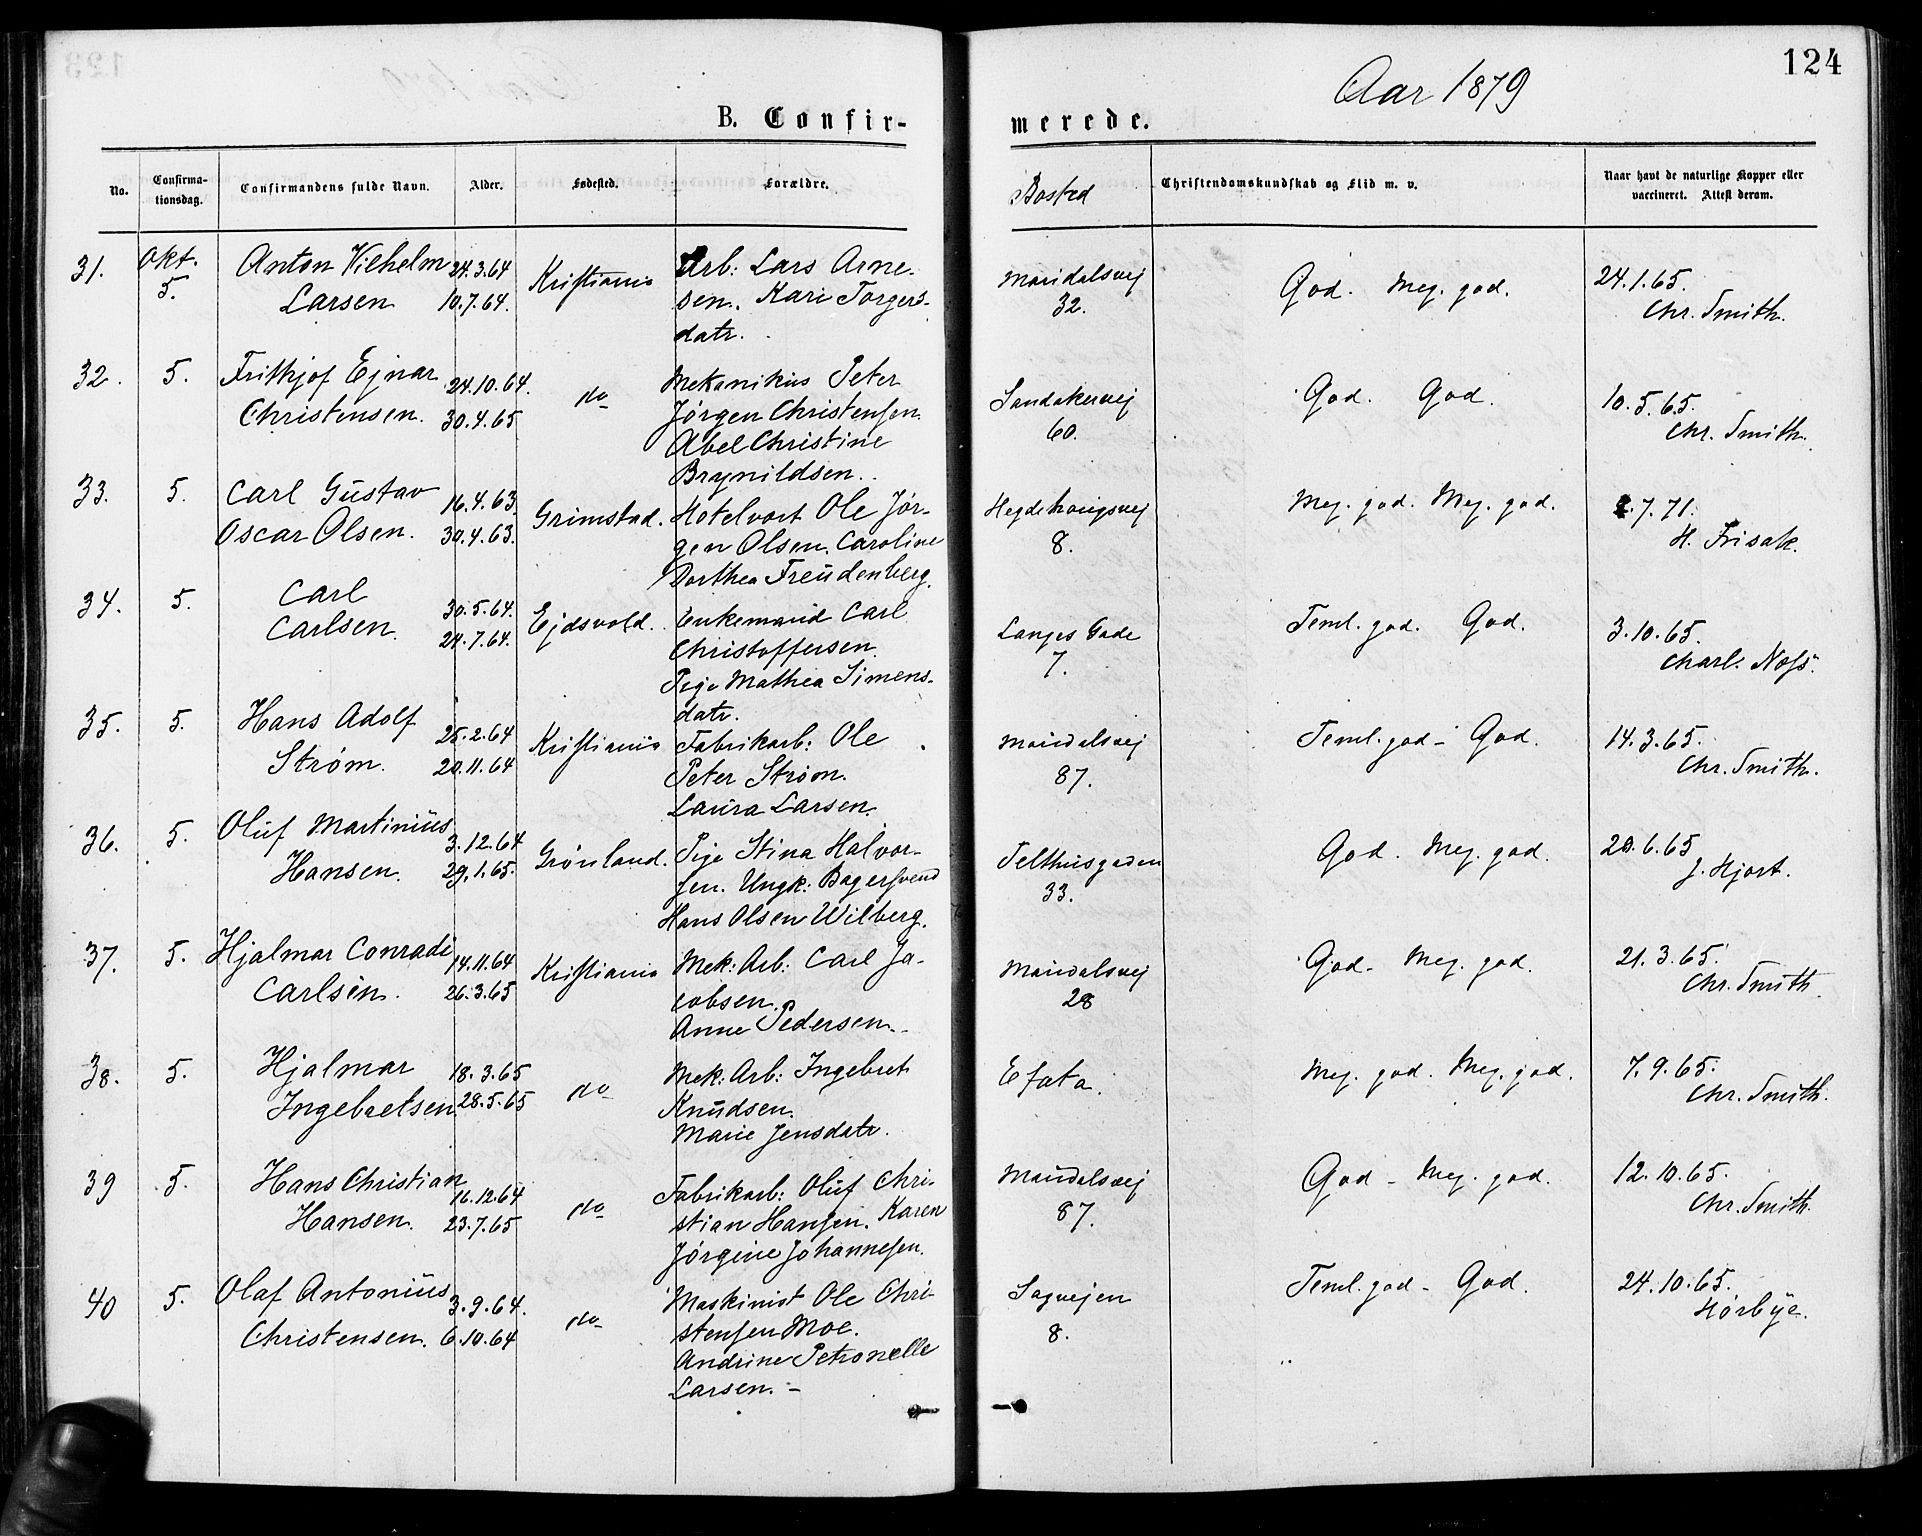 124
Aar 1879
B. Confir-
merede.
No.
Confirma-
tionsdag.
Confirmandens fulde Navn.
Alder.
Fødested.
Forældre.
Bosted
Christendomskundskab og Flid m. v.
Naar havt de naturlige Kopper eller
vaccineret. Attest derom.
31. Okt. 5. Anton Vilhelm Larsen 24.3.64 10.7.64. Kristiania Arb: Lars Arne-
sen. Kari Torgers-
datr.
Maridalsvej 32. God. Meg. god. 24.1.65. Chr. Smith.
32. 5. Frithjof Ejnar Christensen. 24.10.64. 30.4.65 do Mekanikus Peter
Jørgen Christensen.
Abel Christine
Brynildsen.
Sandakervej 60. God. God. 10.5.65. Chr. Smith.
33. 5. Carl Gustav Oscar Olsen. 16.4.63. 30.4.63. Grimstad. Hotelvært Ole Jør-
gen Olsen. Caroline
Dorthea Freudenberg.
Hegdehaugsvej 8. Meg. god. Meg. god. 7.71. H. Frisak.
34. 5. Carl Carlsen. 30.5.64. 24.7.64. Ejdsvold. Enkemand Carl
Christoffersen.
Pige Mathea Simens-
datr.
Langes Gade 7. Teml. god. God. 3.10.65. Charl. Noss.
35. 5. Hans Adolf Strøm. 25.2.64 20.11.64 Kristiania Fabrikarb: Ole
Peter Strøm.
Laura Larsen.
Maridalsvej 87. Teml. god - God. 14.3.65. Chr. Smith.
36. 5. Oluf Martinius Hansen. 3.12.64 29.1.65. Grønland. Pige Stina Halvor-
sen. Ungk: Bagersvend
Hans Olsen Wilberg.
Telthusgaden 33. God. Meg. god. 20.6.65 J. Hjort.
37. 5. Hjalmar Conradi Carlsen. 14.11.64 26.3.65 Kristiania Mek: Arb: Carl Ja-
cobsen.
Anne Pedersen.
Maridalsvej 28 God - Meg. god. 21.3.65. Chr. Smith.
38. 5. Hjalmar Ingebretsen 18.3.65 28.5.65 do Mek: Arb: Ingebret
Knudsen.
Marie Jensdatr.
Efata. Meg. god. Meg. god. 7.9.65. Chr. Smith.
39 5. Hans Christian Hansen. 16.12.64 23.7.65 do Fabrikarb: Oluf Chri-
stian Hansen. Karen
Jørgine Johannesen.
Maridalsvej 87. God - Meg. god. 12.10.65. Chr. Smith.
40 5. Olaf Antonius Christensen. 3.9.64. 6.10.64 do Maskinist Ole Chri-
stensen Moe.
Andrine Petronelle
Larsen. -
Sagvejen 8. Teml. god - God. 24.10.65. Hørbye.